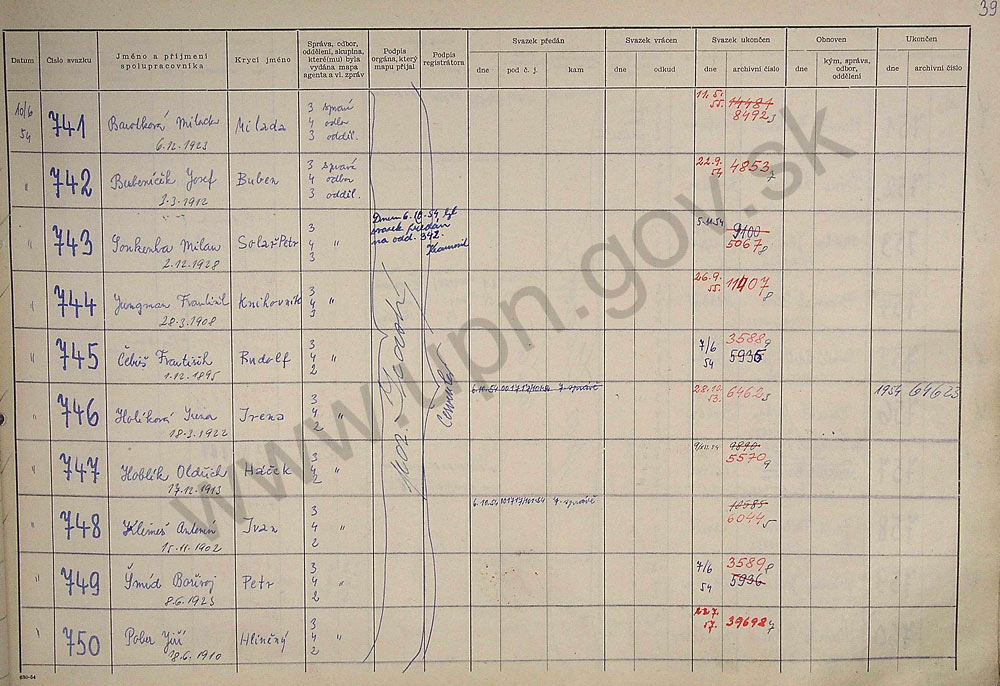 39
Datum
Číslo svazku
Jméno a příjmení
spolupracovníka
Krycí jméno
Správa, odbor,
oddělení, skupina,
které(mu) byla
vydána mapa
agenta a vl. zpráv
Podpis
orgána, který
mapu přijal
Podpis
registrátora
Svazek předán
dne
pod č. j.
kam
Svazek vrácen
dne
odkud
Svazek ukončen
dne
archivní číslo
Obnoven
dne
kým, správa,
odbor,
oddělení
Ukončen
dne
archivní číslo
10/6
54
741
Milada
6.12.1923
3 správa
4 odbor
3 odděl.
11.5.
55.
14484
8492
3
"
742
Bubeníčik Josef
3.3.1912
Buben
3 správa
4 odbor
3 odděl.
22.9.
54
4853
7
"
743
Milan
2.12.1928
Solař Petr
3
4 "
3
Dnem 6.10.54 byl
svazek předán
na odd. 342.
5.11.54
9100
5067
8
"
744
Jungman František
28.3.1908
Knihovník
3
4 "
3
26.9.
55.
11407
8
"
745
Čebiš František
1.12.1895
Rudolf
3
4 "
2
7/6
54
3588
9
5936
"
746
Holíková Irena
18.3.1922
Irena
3
4 "
2
6.10.54
7. správě
28.10.
53.
6462
3
1954
64623
"
747
Hoblík Oldřich
17.12.1913
Háček
3
4 "
2
9890
5570
9
"
748
Klimeš Antonín
15.11.1902
Ivan
3
4 "
2
6.10.54
7. správě
10585
6044
5
"
749
Šmíd Bořivoj
8.6.1923
Petr
3
4 "
2
7/6
54
3589
8
5936
"
750
Pober Jiří
18.6.1910
Hliněný
3
4 "
2
22.7.
57.
39698
7
630-54
www.upn.gov.sk